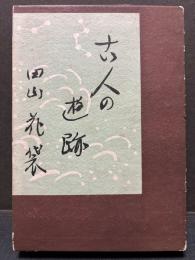 古人の
遊跡
田山花袋